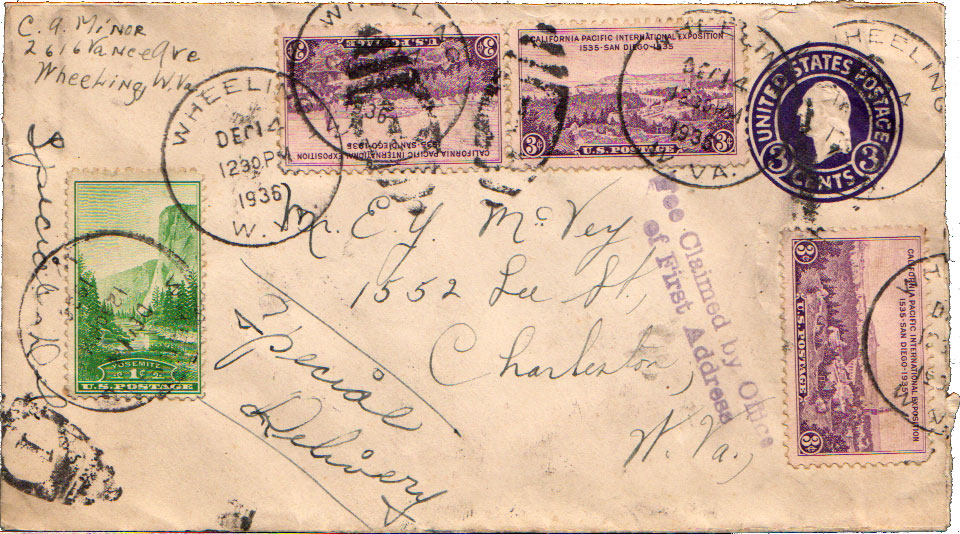 C. A. Minor
2616 Vance Ave
Wheeling, W. Va
Special Del
WHEELING
DEC 14
1230 PM
1936
W. VA.
U.S. POSTAGE
3¢
CALIFORNIA PACIFIC INTERNATIONAL EXPOSITION
1535-SAN DIEGO-1935
CALIFORNIA PACIFIC INTERNATIONAL EXPOSITION
1535-SAN DIEGO-1935
3¢ U.S. POSTAGE 3¢
DEC 14
1230 PM
1936
W. VA.
WHEELING
UNITED STATES POSTAGE
3 CENTS 3
Mr. E. Y. McVey
1552 Lee St.,
Charleston,
W. Va.,
Special
Delivery
Fee Claimed by Office
of First Address
YOSEMITE
1¢
U.S. POSTAGE
CALIFORNIA PACIFIC INTERNATIONAL EXPOSITION
1535-SAN DIEGO-1935
3¢ U.S. POSTAGE 3¢